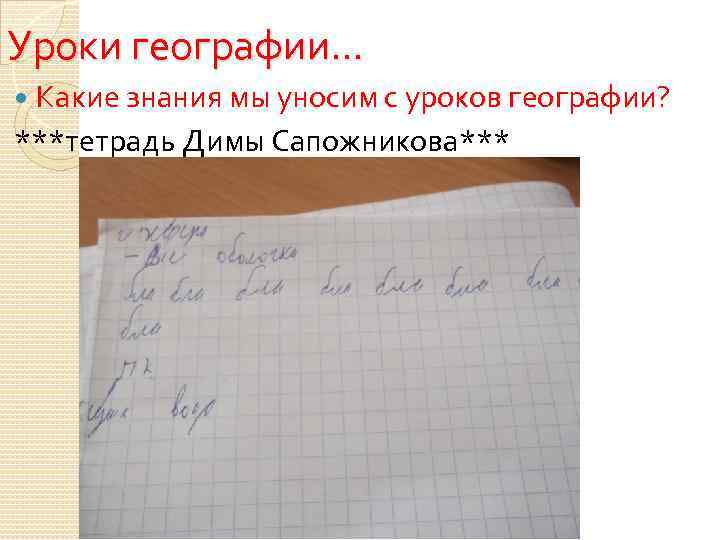 Уроки географии...
• Какие знания мы уносим с уроков географии?
***тетрадь Димы Сапожникова***
оболочка
бла бла бла бла бла бла бла
бла
вода